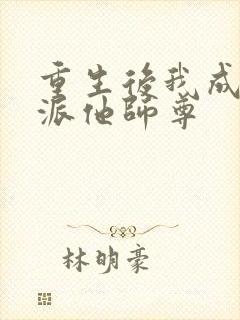 重生後我成
派他師尊
林明豪